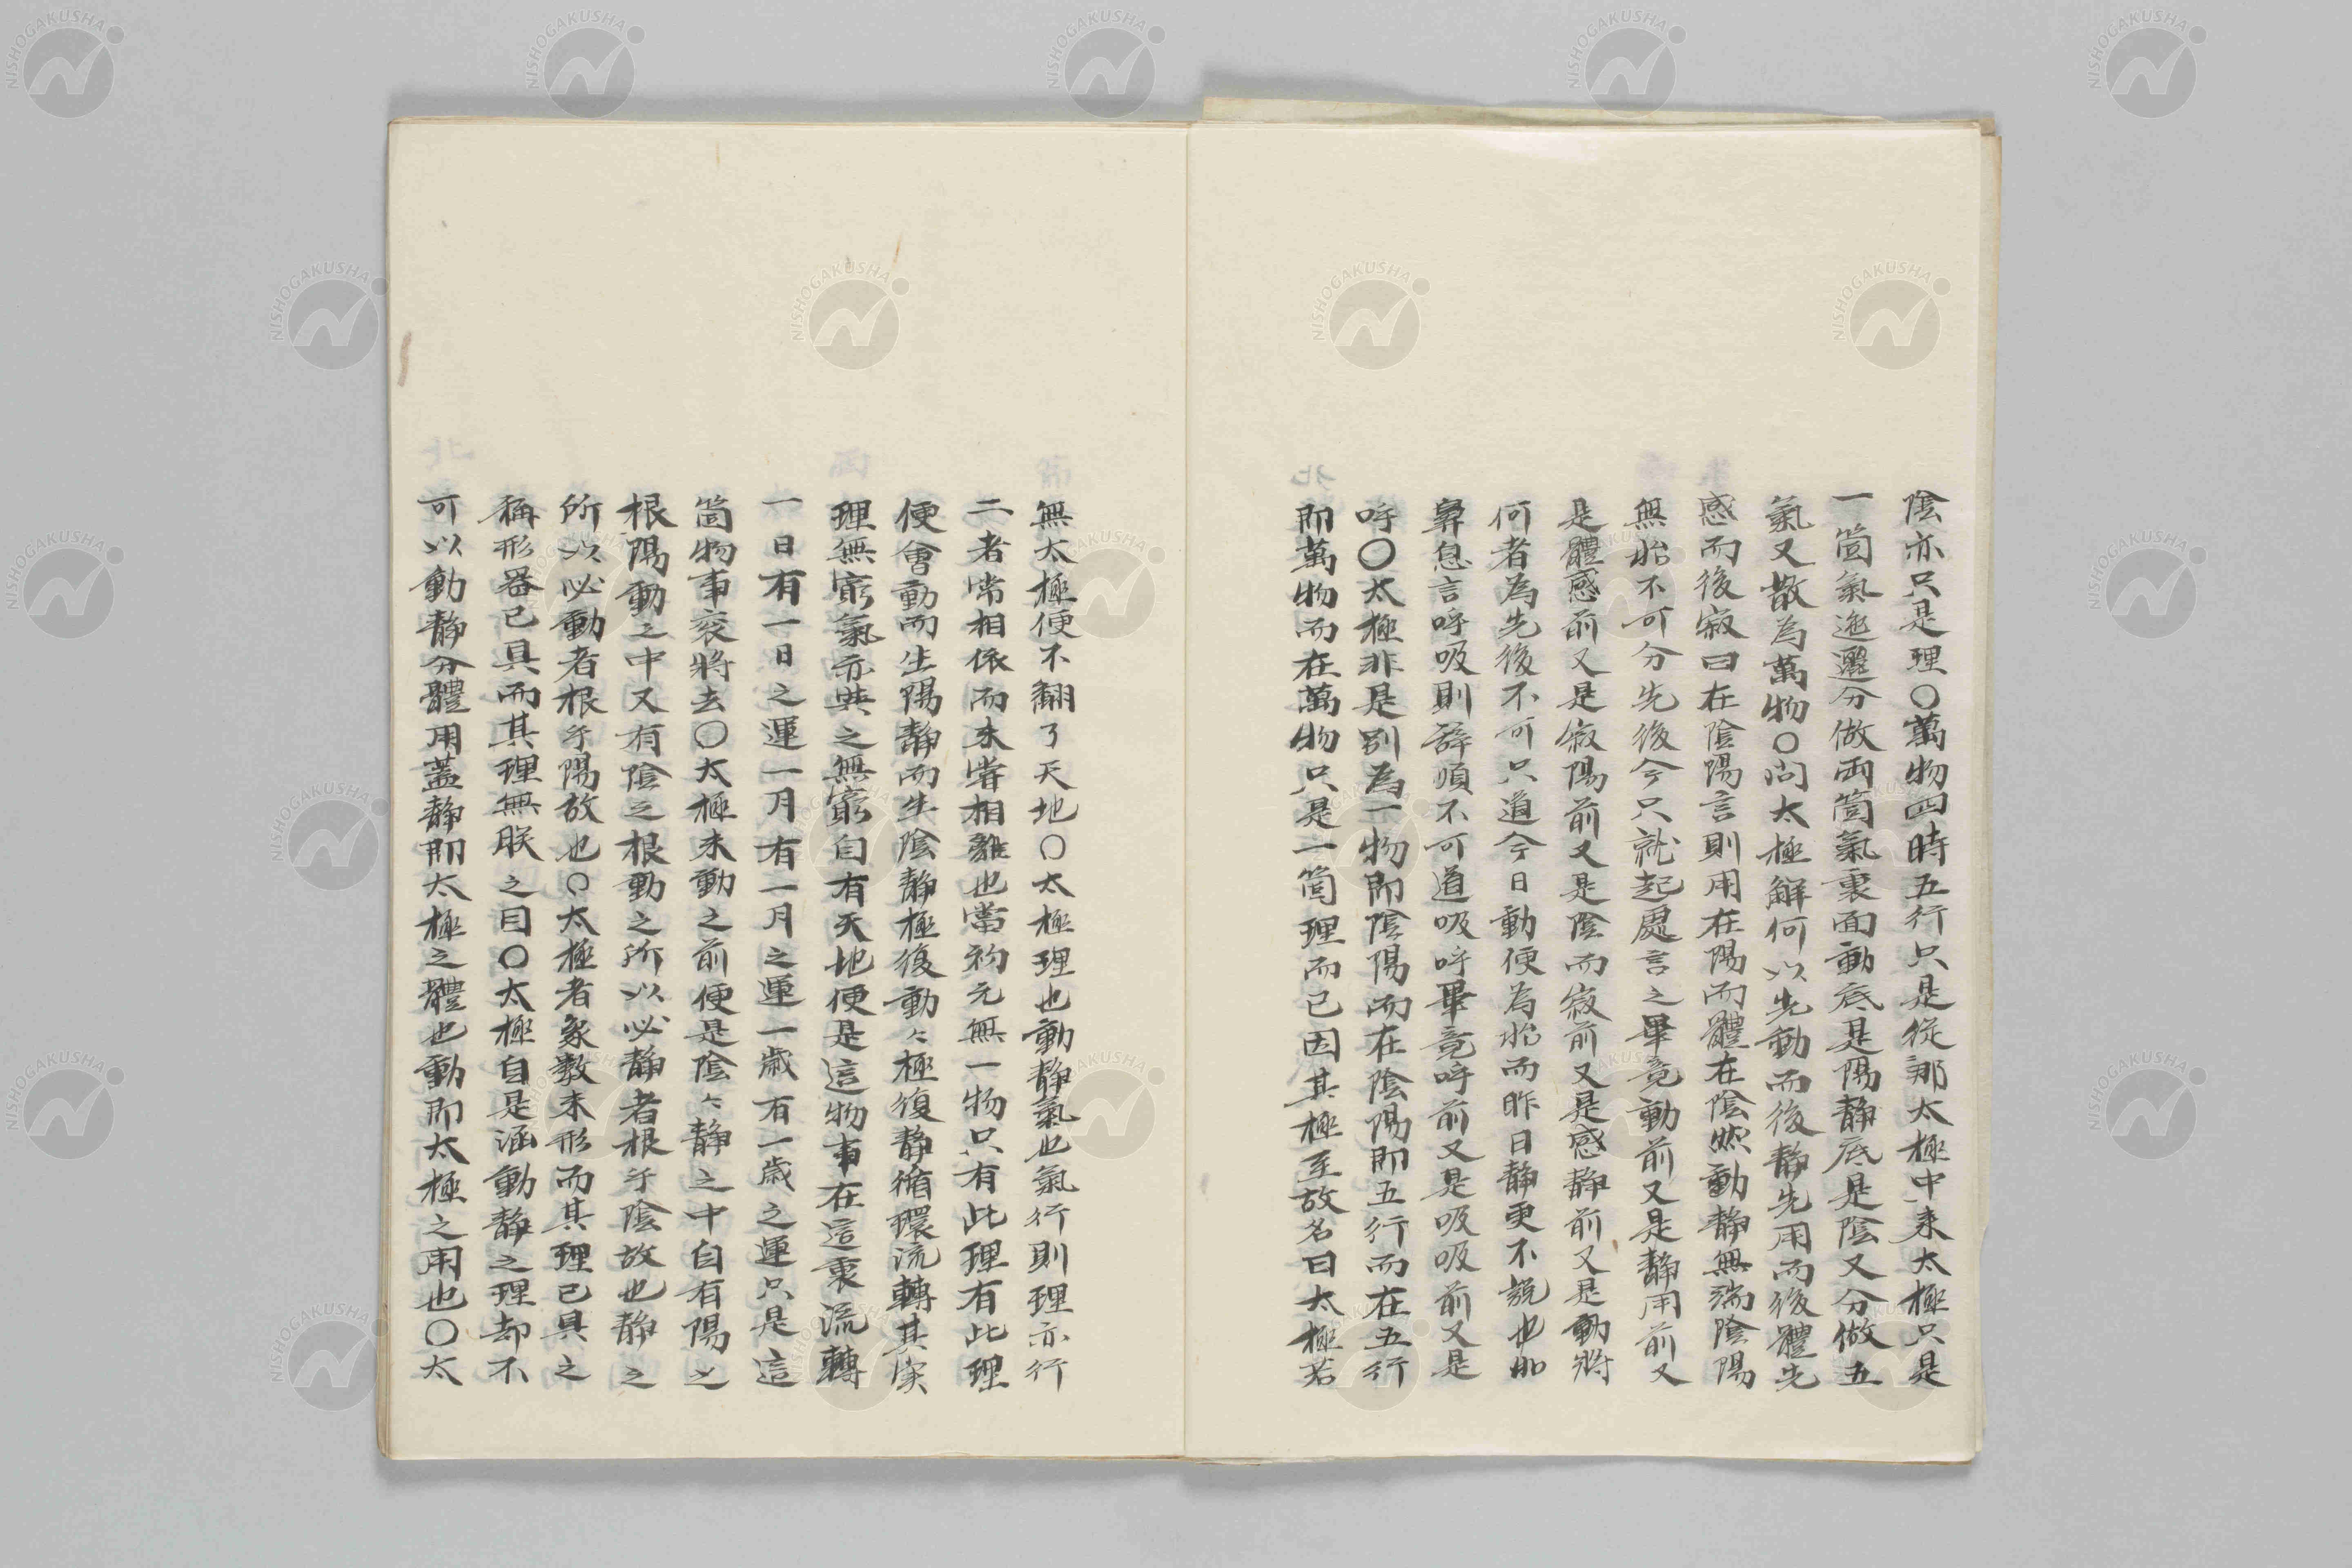 陰亦只是理〇萬物四時五行只是從那太極中来太極只是
一箇氣迤邐分做兩箇氣裏面動底是陽静底是陰又分做五
氣又散為萬物〇問太極解何以先動而後静先用而後體先
感而後寂曰在陰陽言則用在陽而體在陰然動静無端陰陽
無始不可分先後今只就起處言之畢竟動前又是静用前又
是體感前又是寂陽前又是陰而寂前又是感静前又是動將
何者為先後不可只道今日動便為始而昨日静更不説也如
鼻息言呼吸則辞順不可道吸呼畢竟呼前又是吸吸前又是
呼〇太極非是別為一物即陰陽而在陰陽即五行而在五行
即萬物而在萬物只是一箇理而已因其極至故名曰太極若
無太極便不翻了天地〇太極理也動静氣也氣行則理亦行
二者常相依而未嘗相離也當初元無一物只有此理有此理
便會動而生陽静而生陰静極復動〻極復静循環流轉其実
理無窮氣亦與之無窮自有天地便是這物事在這裏流轉
一日有一日之運一月有一月之運一歳有一歳之運只是這
箇物事衮將去〇太極未動之前便是陰〻静之中自有陽之
根陽動之中又有陰之根動之所以必静者根乎陰故也静之
所以必動者根乎陽故也〇太極者象數未形而其理已具之
稱形器已具而其理無朕之目〇太極自是涵動静之理却不
可以動静分體用蓋静即太極之體也動即太極之用也〇太
NISHOGAKUSHA